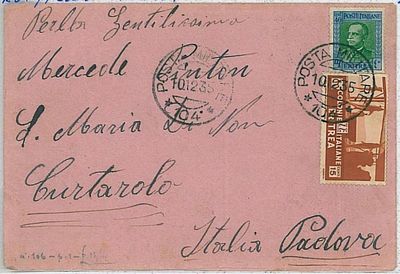 Perlla Gentilissima
Mercede Pinton
S. Maria Di Non
Curtarolo
Italia Padova
POSTE ITALIANE
POSTA MILITARE
10.12.35
* 104 *
POSTA MILITARE
10.12.35
* 104 *
COLONIE ITALIANE
ERITREA
15